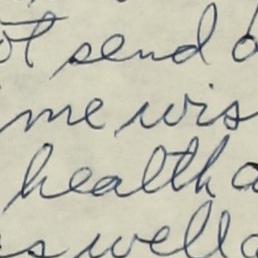 send
me wis
health a
well